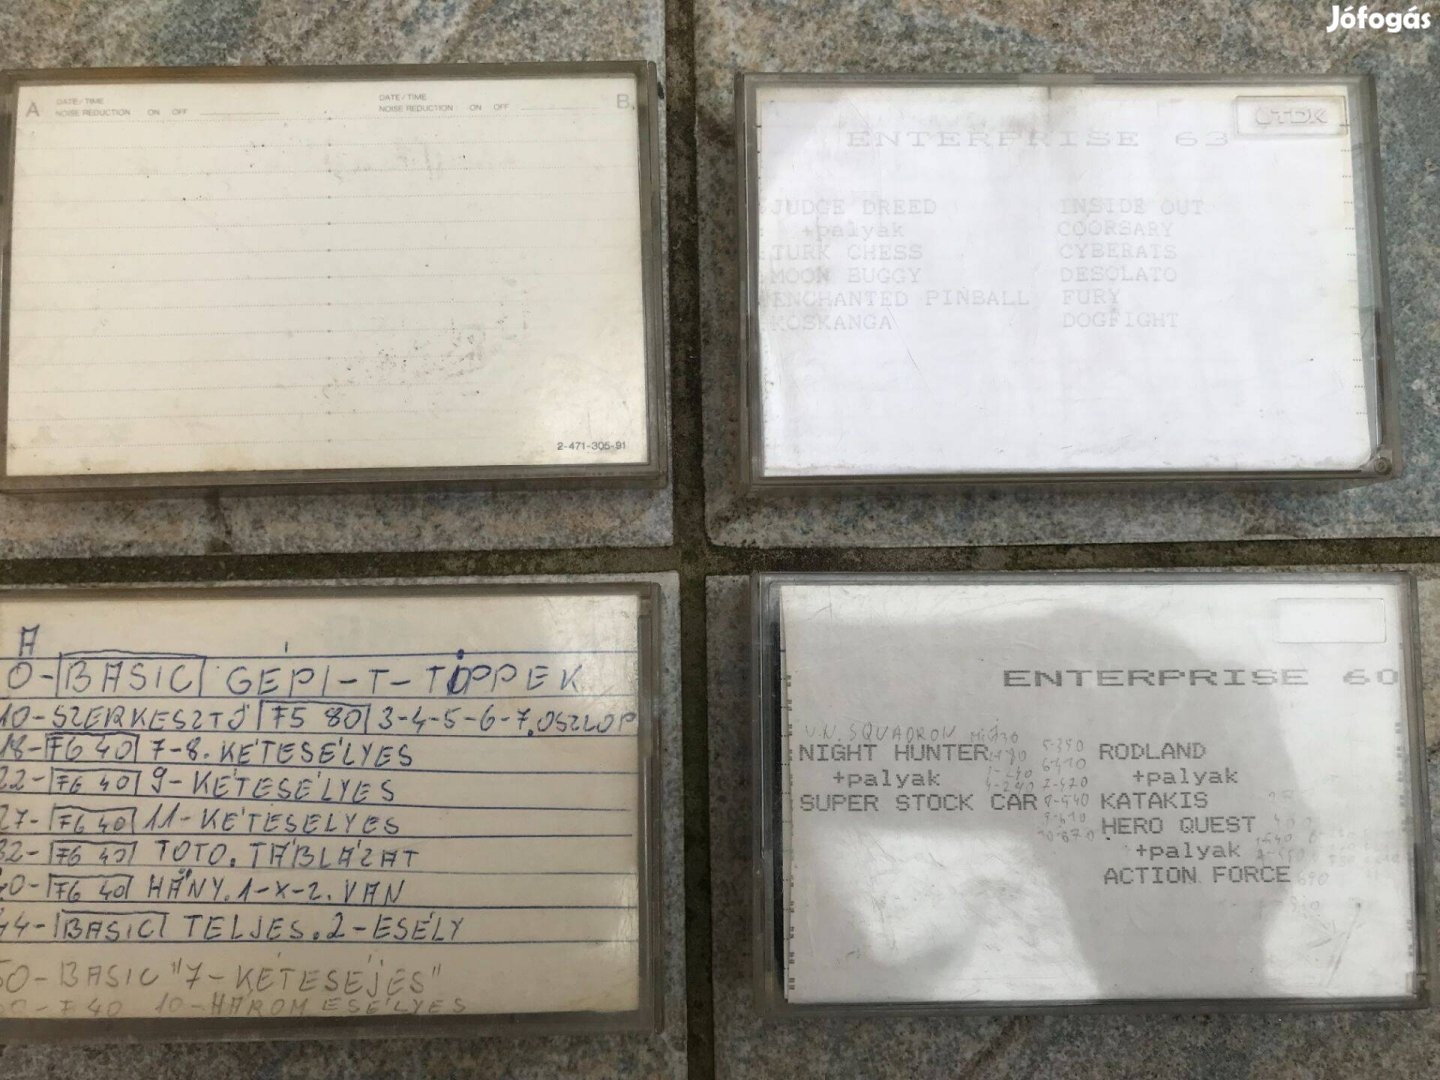 Jófogás
A DATE/TIME
NOISE REDUCTION ON OFF
DATE/TIME B
NOISE REDUCTION ON OFF
2-471-305-91
TDK
ENTERPRISE 63
JUDGE DREED
+palyak
TURK CHESS
MOON BUGGY
ENCHANTED PINBALL
KOSKANGA
INSIDE OUT
COORSARY
CYBERATS
DESOLATO
FURY
DOGFIGHT
A
0-BASIC GÉPI-T-TIPPEK
10-SZERKESZTŐ F5 80 3-4-5-6-7.OSZLOP
18-F6 40 7-8.KÉTESÉLYES
22-F6 40 9-KÉTESÉLYES
27-F6 40 11-KÉTESELYES
32-F6 40 TOTO.TÁBLÁZAT
40-F6 40 HÁNY.1-X-2.VAN
44-BASIC TELJES.2-ESÉLY
50-BASIC "7-KÉTESÉJES"
F 40 10-HÁROMESÉLYES
ENTERPRISE 60
U.N. SQUADRON
NIGHT HUNTER
+palyak
SUPER STOCK CAR
RODLAND
+palyak
KATAKIS
HERO QUEST
+palyak
ACTION FORCE